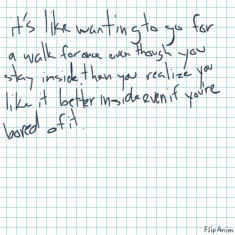 it's like wanting to go for
a walk for once even though you
stay inside. than you realize you
like it better inside even if you're
bored of it.
FlipAnim